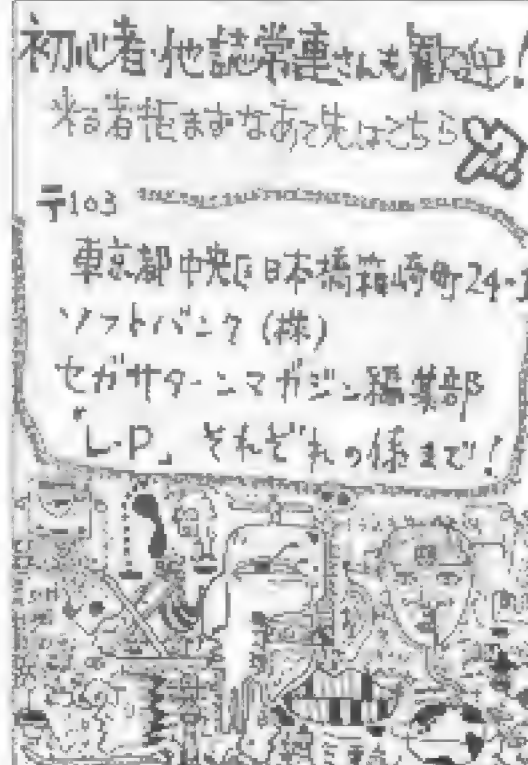 初心者・他誌常連さんも歓迎!
あて先はこちら
〒103
東京都中央区日本橋箱崎町24-1
ソフトバンク(株)
セガサターンマガジン編集部
「L・P」それぞれの係まで!